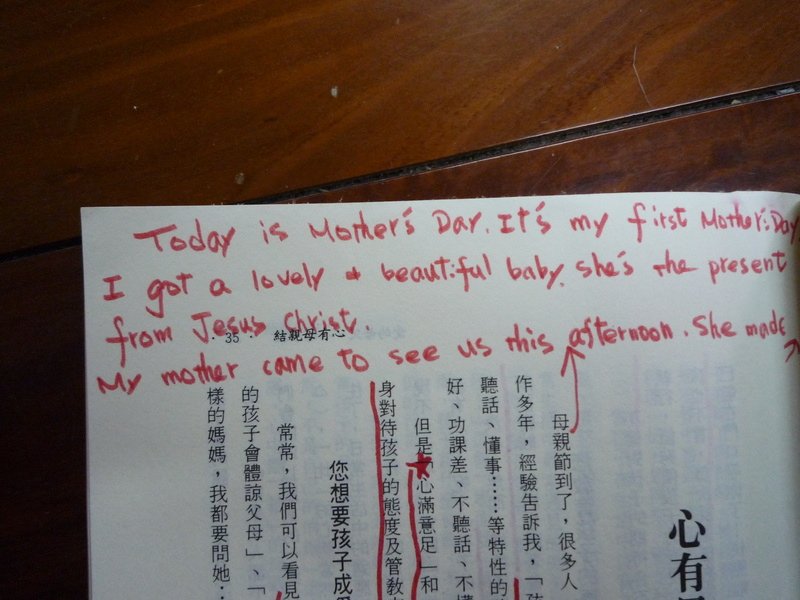 Today is Mother's Day. It's my first Mother's Day
I got a lovely & beautiful baby. She's the present
from Jesus Christ.
· 35 · 結親母有心
My mother came to see us this afternoon. She made
心有
母親節到了，很多人
作多年，經驗告訴我，「孩
聽話、懂事……等特性的
好、功課差、不聽話、不懂
但是「心滿意足」和
身對待孩子的態度及管教
您想要孩子成
常常，我們可以看見
的孩子會體諒父母」、「
樣的媽媽，我都要問她：